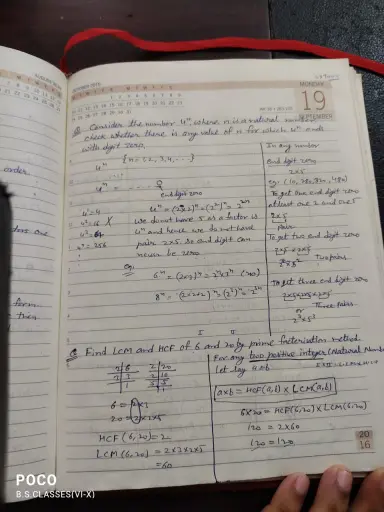 MONDAY
19
SEPTEMBER
Q. Consider the number 4ⁿ, where n is a natural number
check whether there is any value of n for which 4ⁿ ends
with digit zero.
4ⁿ {n=1,2,3,4,...}
4ⁿ = ......0
End digit zero
4¹=4
4²=16 X
4³=64
4⁴=256
4ⁿ = (2×2)ⁿ = (2²)ⁿ = 2²ⁿ
we do not have 5 as a factor in
4ⁿ and hence we do not have
pair 2×5. So end digit can
never be zero.
Eg:
6ⁿ = (2×3)ⁿ = 2ⁿ×3ⁿ (no)
8ⁿ = (2×2×2)ⁿ = (2³)ⁿ = 2³ⁿ
In any number
End digit zero
2×5
To get one end digit zero
at least one 2 and one 5
2×5
Pair
To get two end digit zero
2×5×2×5
2²×5² Two pairs.
To get three end digit zero
2×5×2×5×2×5
or Three pairs.
2³×5³
I II
Q. Find LCM and HCF of 6 and 20 by prime factorisation method.
2|6 2|20
3|3 2|10
1 5|5
1
6 = 2×3
20 = 2×2×5
HCF(6,20) = 2
LCM(6,20) = 2×2×3×5
= 60
For any two positive integer (Natural Number
Let say a & b
a×b = HCF(a,b) × LCM(a,b)
6×20 = HCF(6,20) × LCM(6,20)
120 = 2×60
120 = 120
20
16
POCO
B.S.CLASSES(VI-X)